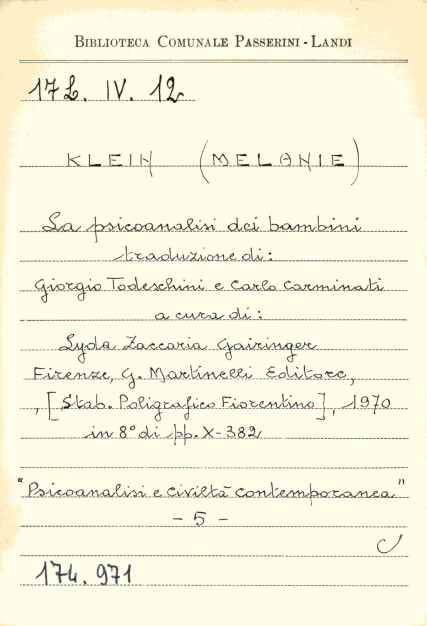 BIBLIOTECA COMUNALE PASSERINI - LANDI
17L. IV. 12
KLEIN (MELANIE)
La psicoanalisi dei bambini
traduzione di:
Giorgio Todeschini e Carlo Carminati
a cura di:
Lyda Zaccaria Gairinger
Firenze, G. Martinelli Editore,
, [Stab. Poligrafico Fiorentino], 1970
in 8° di pp. X-382
"Psicoanalisi e civiltà contemporanea"
- 5 -
174.971